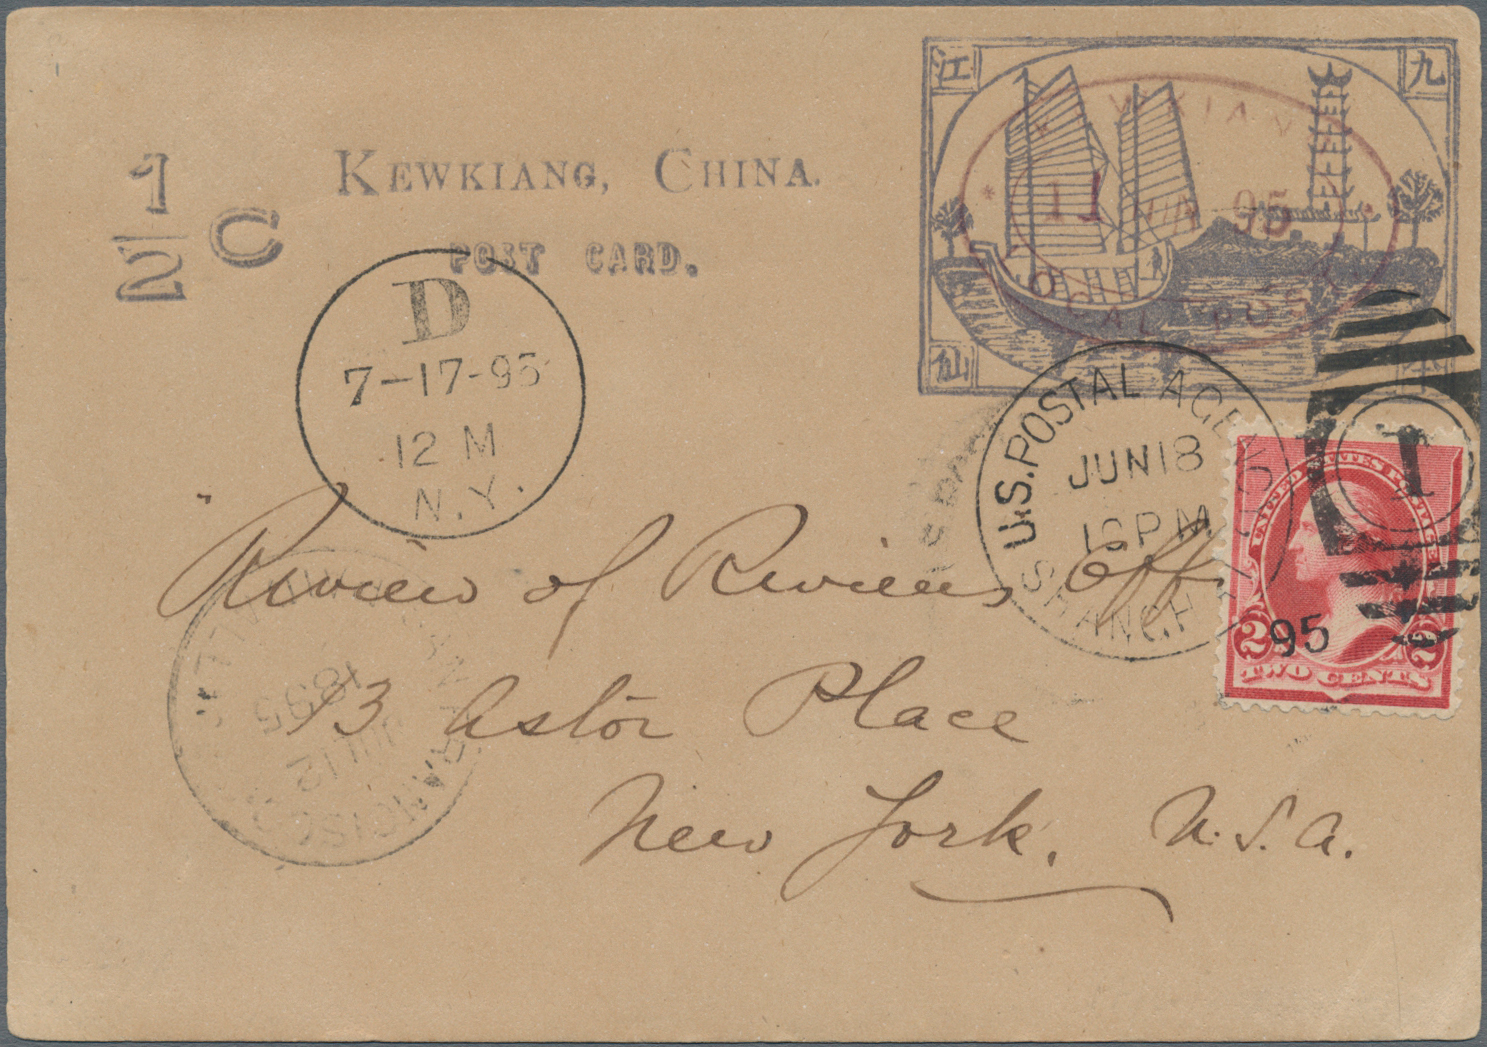 江 九
KEWKIANG, CHINA.
1/2 C
POST CARD.
11 95
LOCAL POST
仙
D
7-17-95
12 M
N.Y.
U.S. POSTAL AGENCY
JUN 18
SHANGHAI
95
1
UNITED STATES POSTAGE
2 2
TWO CENTS
Review of Reviews Off.
13 Astor Place
New York, U.S.A.
1895
JUL 12